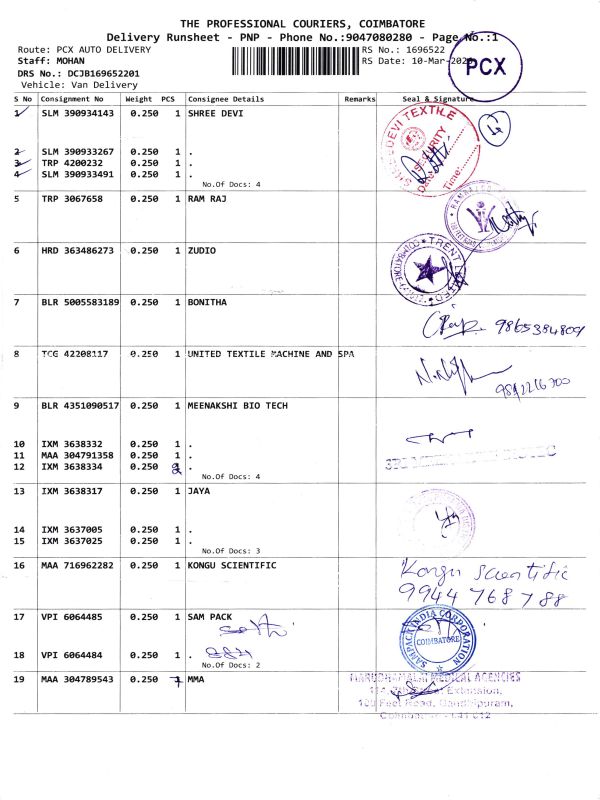 THE PROFESSIONAL COURIERS, COIMBATORE
Delivery Runsheet - PNP - Phone No.:9047080280 - Page No.:1
Route: PCX AUTO DELIVERY RS No.: 1696522
Staff: MOHAN RS Date: 10-Mar-2026
PCX
DRS No.: DCJB169652201
Vehicle: Van Delivery
S No Consignment No Weight PCS Consignee Details Remarks Seal & Signature
1 SLM 390934143 0.250 1 SHREE DEVI
SHREEDEVI TEXTILE
SECURITY
Date:
Time:
2 SLM 390933267 0.250 1 .
3 TRP 4200232 0.250 1 .
4 SLM 390933491 0.250 1 .
No.Of Docs: 4
5 TRP 3067658 0.250 1 RAM RAJ
6 HRD 363486273 0.250 1 ZUDIO
TRENT
COIMBATORE
7 BLR 5005583189 0.250 1 BONITHA
9865384809
8 TCG 42208117 0.250 1 UNITED TEXTILE MACHINE AND SPA
9 BLR 4351090517 0.250 1 MEENAKSHI BIO TECH
10 IXM 3638332 0.250 1 .
11 MAA 304791358 0.250 1 .
12 IXM 3638334 0.250 .
No.Of Docs: 4
13 IXM 3638317 0.250 1 JAYA
14 IXM 3637005 0.250 1 .
15 IXM 3637025 0.250 1 .
No.Of Docs: 3
16 MAA 716962282 0.250 1 KONGU SCIENTIFIC
Kongu Scientific
9944 768 788
17 VPI 6064485 0.250 1 SAM PACK
SAMPACK INDIA CORPORATION
COIMBATORE
18 VPI 6064484 0.250 1 .
No.Of Docs: 2
19 MAA 304789543 0.250 1 MMA
MARUDHAMALAI MEDICAL AGENCIES
Extension,
100 Feet Road, Gandhipuram,
Coimbatore - 641 012